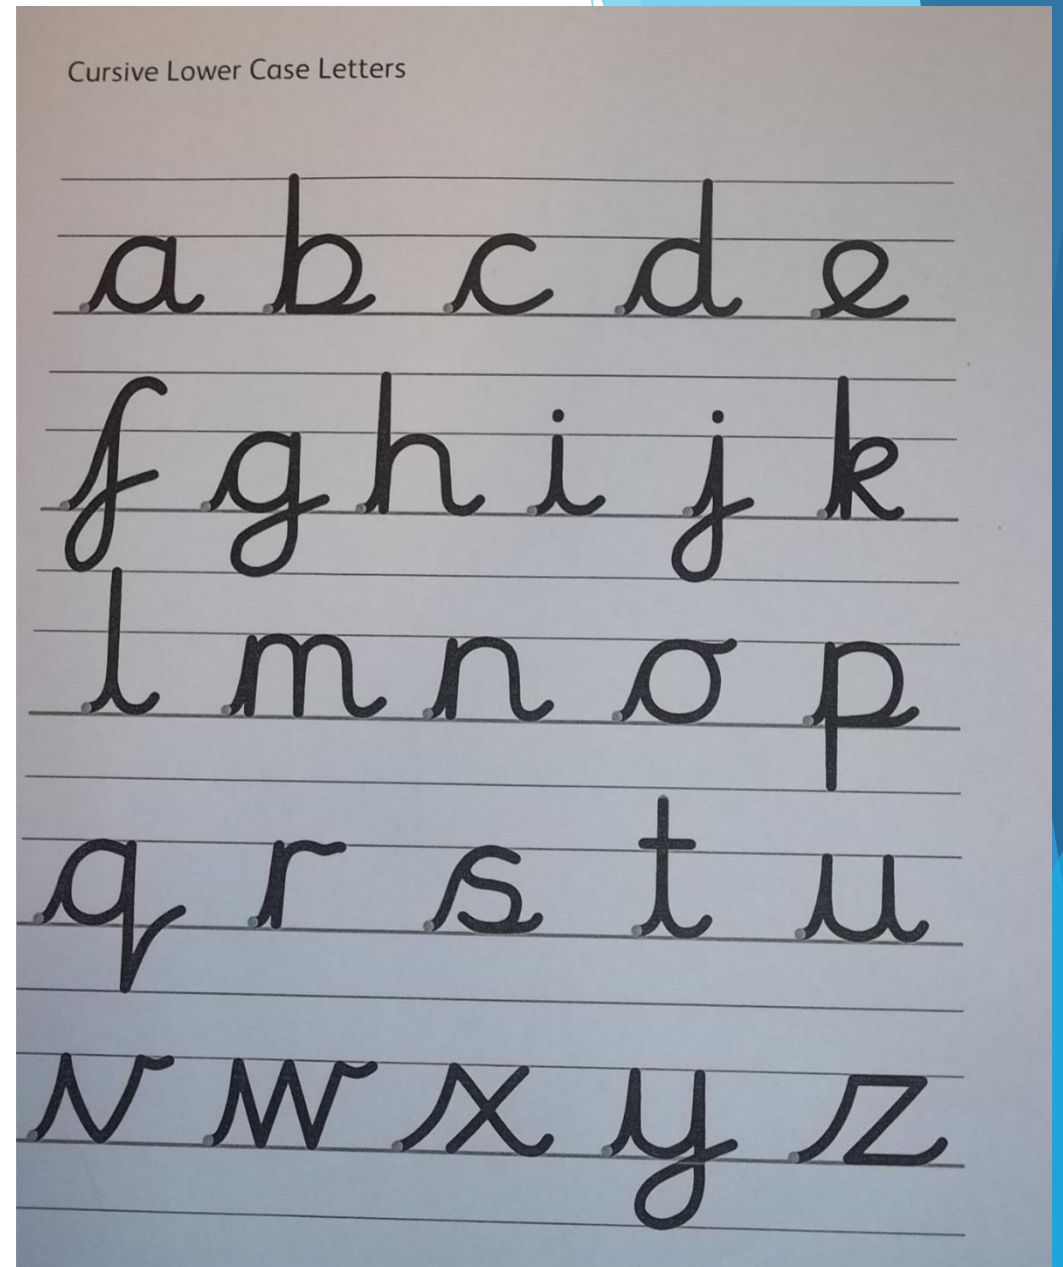 Cursive Lower Case Letters
a b c d e
f g h i j k
l m n o p
q r s t u
v w x y z